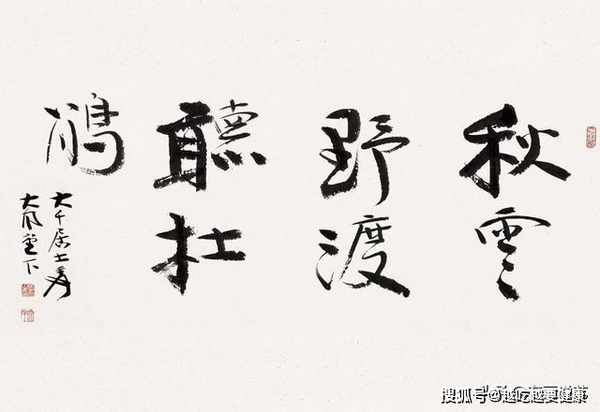 秋雲
野渡
聽杜
鵑
大千居士爰
大風堂下
搜狐号@越吃越要健康